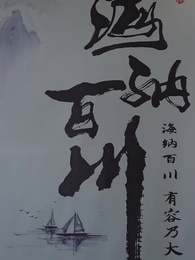 海纳百川
海纳百川 有容乃大